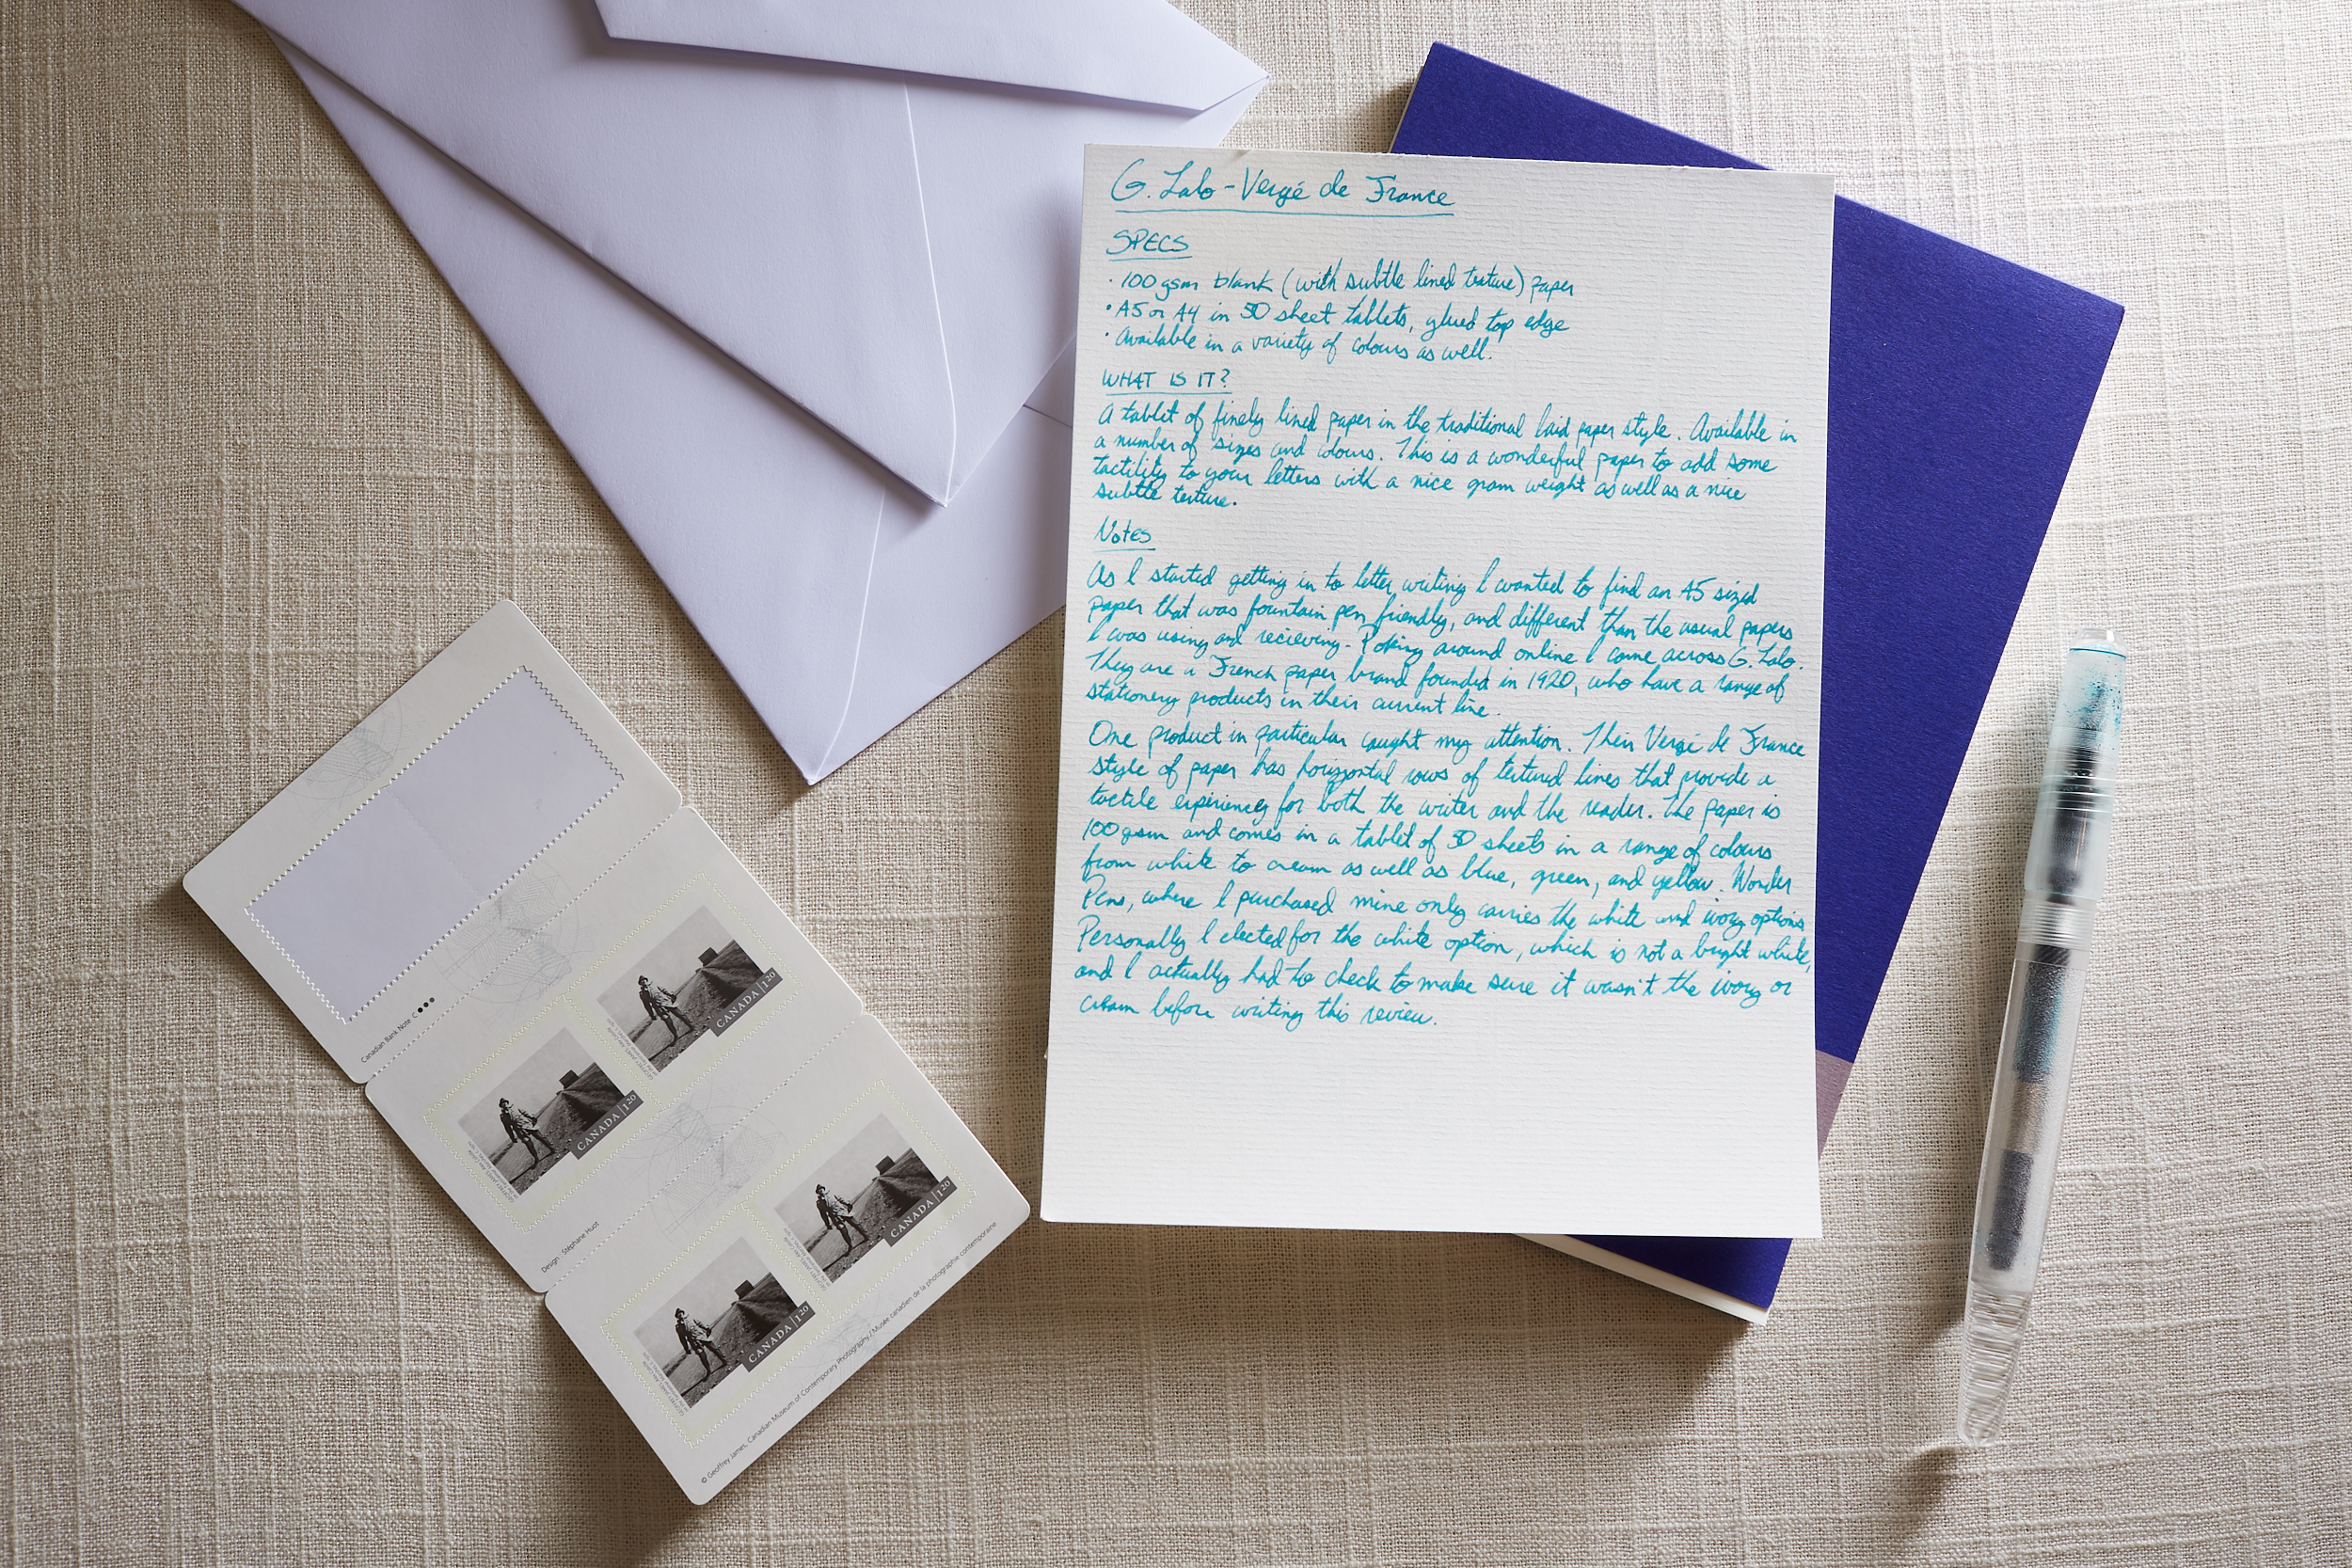 G. Lalo - Vergé de France
SPECS
· 100 gsm blank (with subtle lined texture) paper
· A5 or A4 in 50 sheet tablets, glued top edge
· Available in a variety of colours as well.
WHAT IS IT?
A tablet of finely lined paper in the traditional laid paper style. Available in
a number of sizes and colours. This is a wonderful paper to add some
tactility to your letters with a nice gram weight as well as a nice
subtle texture.
Notes
As I started getting in to letter writing I wanted to find an A5 sized
paper that was fountain pen friendly, and different than the usual papers
I was using and recieving. Poking around online I came across G. Lalo.
They are a French paper brand founded in 1920, who have a range of
stationery products in their current line.
One product in particular caught my attention. Their Vergé de France
style of paper has horizontal rows of textured lines that provide a
tactile experiency for both the writer and the reader. The paper is
100 gsm and comes in a tablet of 50 sheets in a range of colours
from white to cream as well as blue, green, and yellow. Wonder
Pens, where I purchased mine only carries the white and ivory options
Personally I elected for the white option, which is not a bright white,
and I actually had to check to make sure it wasn't the ivory or
cream before writing this review.
Canadian Bank Note C
CANADA | 1.20
CANADA | 1.20
Design : Stéphane Huot
CANADA | 1.20
CANADA | 1.20
© Geoffrey James, Canadian Museum of Contemporary Photography / Musée canadien de la photographie contemporaine